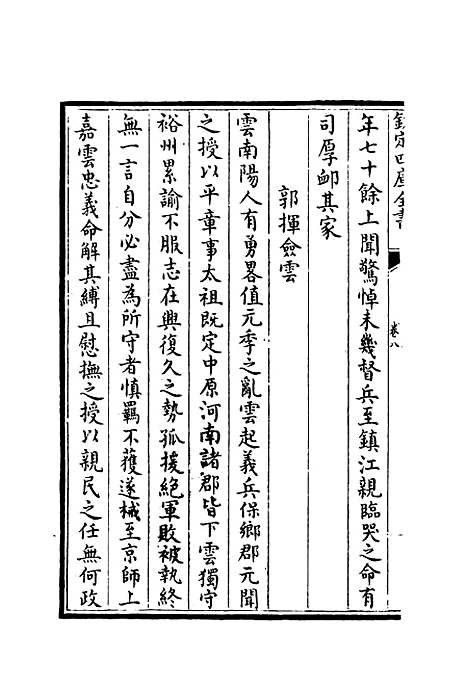 欽定四庫全書
卷八
年七十餘上聞驚悼未幾督兵至鎮江親臨哭之命有
司厚䘏其家
郭揮僉雲
雲南陽人有勇畧值元季之亂雲起義兵保鄉郡元聞
之授以平章事太祖既定中原河南諸郡皆下雲獨守
裕州累諭不服志在興復久之勢孤援絕軍敗被執終
無一言自分必盡為所守者慎羈不獲遂械至京師上
嘉雲忠義命解其縛且慰撫之授以親民之任無何政